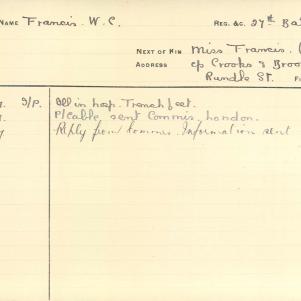 NAME Francis. W. C. REG. &C. 27th Ba
NEXT OF KIN Miss Francis.
ADDRESS c/o Crooks & Broo
Rundle St.
S/P. Ill in hosp. Trench feet.
P/Cable sent Commis, London.
Reply from Commis. Information sent